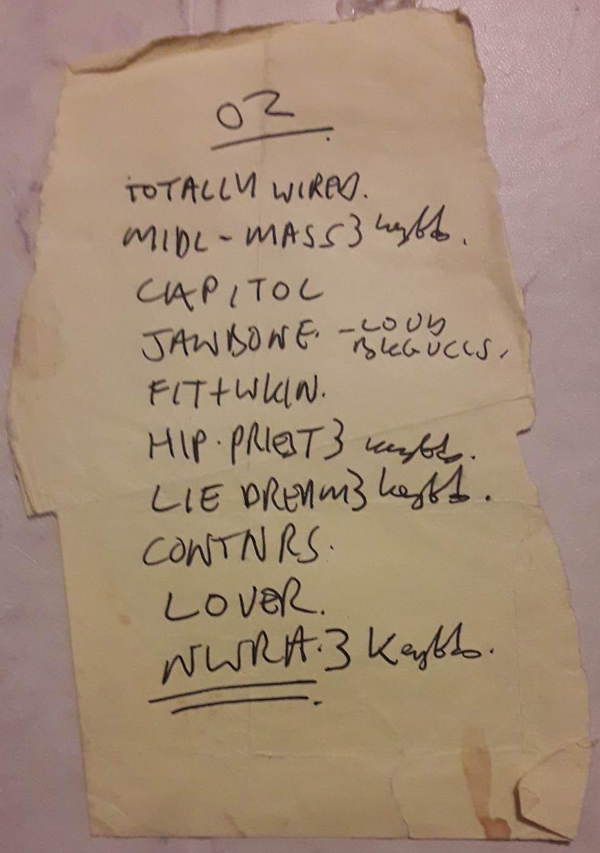 OZ
TOTALLY WIRED.
MIDL-MASS} keybb.
CAPITOL
JAWBONE. - LOUD
BKGVCLS.
FIT+WKIN.
HIP.PRIEST} keybb.
LIE DREAM} keybb.
CONTNRS.
LOVER.
NWRA.} Keybb.